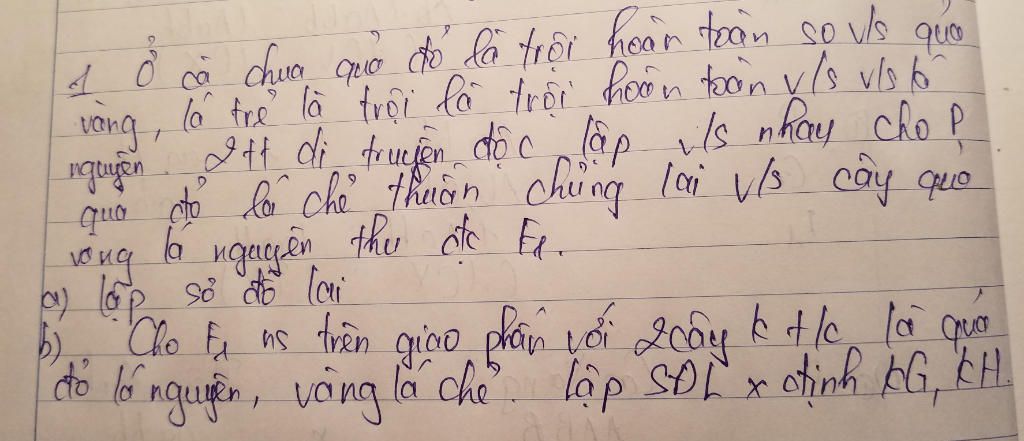 1 Ở cà chua quả đỏ là trội hoàn toàn so v/s quả
vàng, lá trẻ là trội là trội hoàn toàn v/s v/s lá
nguyên. 2tt di truyền độc lập v/s nhay cho P
quả đỏ lá chẻ thuần chủng lai v/s cây quả
vang lá nguyên thu đc F1.
a) lập sơ đồ lai
b) Cho F1 ns trên giao phấn với 2cây k +/c là quả
đỏ lá nguyên, vàng lá chẻ. lập SĐL x định KG, KH.